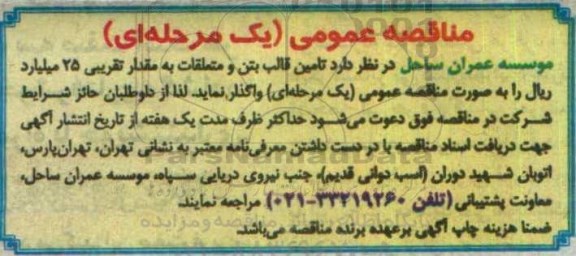 مناقصه عمومی (یک مرحله‌ای)
موسسه عمران ساحل در نظر دارد تامین قالب بتن و متعلقات به مقدار تقریبی ۲۵ میلیارد
ریال را به صورت مناقصه عمومی (یک مرحله‌ای) واگذار نماید. لذا از داوطلبان حائز شرایط
شرکت در مناقصه فوق دعوت می‌شود حداکثر ظرف مدت یک هفته از تاریخ انتشار آگهی
جهت دریافت اسناد مناقصه با در دست داشتن معرفی‌نامه معتبر به نشانی تهران، تهران‌پارس،
اتوبان شهید دوران (اسب دوانی قدیم)، جنب نیروی دریایی سپاه، موسسه عمران ساحل،
معاونت پشتیبانی (تلفن ۳۳۲۱۹۲۶۰-۰۲۱) مراجعه نمایند.
ضمنا هزینه چاپ آگهی برعهده برنده مناقصه می‌باشد.